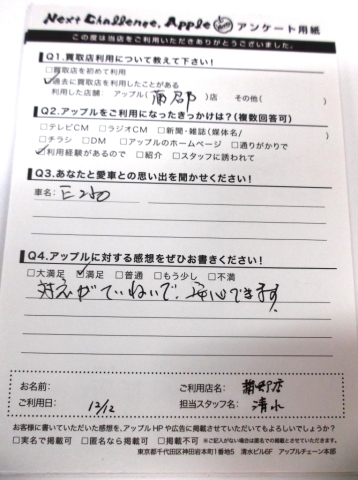 Next Challenge. Apple アンケート用紙
この度は当店をご利用いただきありがとうございました。
Q1.買取店利用について教えて下さい!
□買取店を初めて利用
☑過去に買取店を利用したことがある
利用した店舗 アップル( )店 その他( )
Q2.アップルをご利用になったきっかけは?(複数回答可)
□テレビCM □ラジオCM □新聞・雑誌(媒体名/ )
□チラシ □DM □アップルのホームページ □通りがかりで
☑利用経験があるので □紹介 □スタッフに誘われて
Q3.あなたと愛車との思い出を聞かせください!
車名: E250
Q4.アップルに対する感想をぜひお書きください!
□大満足 ☑満足 □普通 □もう少し □不満
対応がていねいで、安心できます。
お名前: ご利用店名:
ご利用日: 12/12 担当スタッフ名: 清水
お客様に書いていただいた感想を、アップルHPや広告に掲載させていただいてもよろしいでしょうか?
□実名で掲載可 □匿名なら掲載可 □掲載不可 ※ご記入がない場合は匿名での掲載とさせていただきます。
東京都千代田区神田岩本町1番地5 清水ビル6F アップルチェーン本部